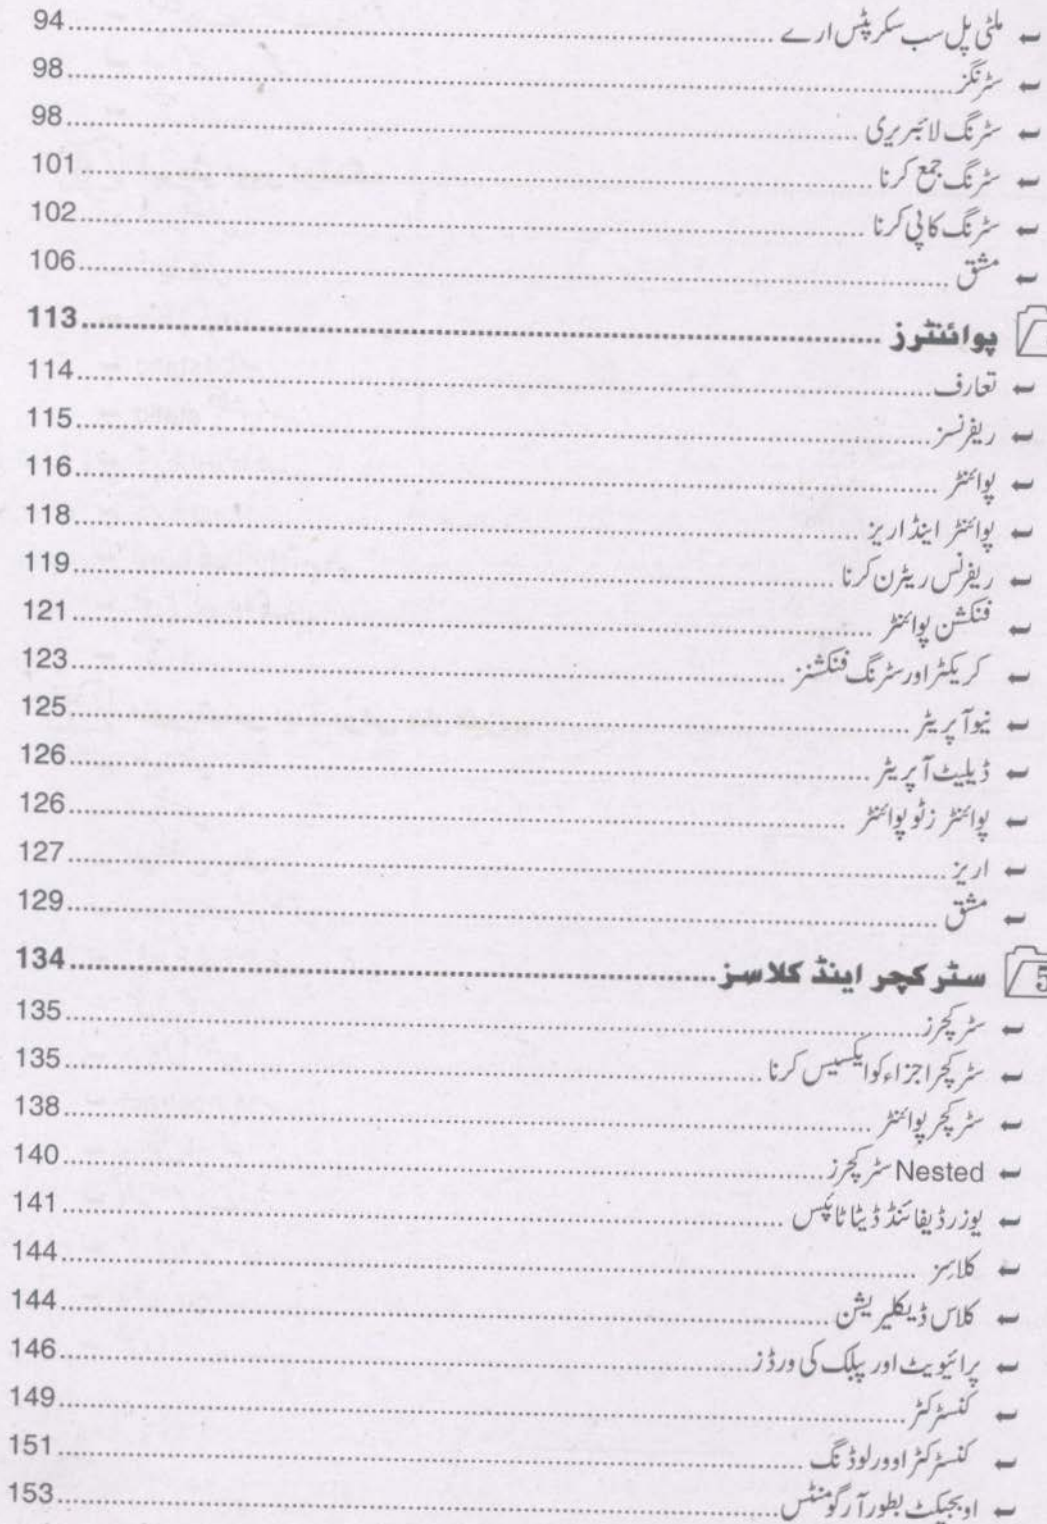 ملٹی پل سب سکرپٹس ارے ........ 94
سٹرنگز ........ 98
سٹرنگ لائبریری ........ 98
سٹرنگ جمع کرنا ........ 101
سٹرنگ کاپی کرنا ........ 102
مشق ........ 106
پوائنٹرز ........ 113
تعارف ........ 114
ریفرنسز ........ 115
پوائنٹر ........ 116
پوائنٹر اینڈ اریز ........ 118
ریفرنس ریٹرن کرنا ........ 119
فنکشن پوائنٹر ........ 121
کریکٹر اور سٹرنگ فنکشنز ........ 123
نیو آپریٹر ........ 125
ڈیلیٹ آپریٹر ........ 126
پوائنٹرز ٹو پوائنٹر ........ 126
اریز ........ 127
مشق ........ 129
5 سٹرکچر اینڈ کلاسز ........ 134
سٹرکچرز ........ 135
سٹرکچر اجزاء کو ایکسیس کرنا ........ 135
سٹرکچر پوائنٹر ........ 138
Nested سٹرکچرز ........ 140
یوزر ڈیفائنڈ ڈیٹا ٹائپس ........ 141
کلاسز ........ 144
کلاس ڈیکلیریشن ........ 144
پرائیویٹ اور پبلک کی ورڈز ........ 146
کنسٹرکٹر ........ 149
کنسٹرکٹر اوورلوڈنگ ........ 151
اوبجیکٹ بطور آرگومنٹس ........ 153